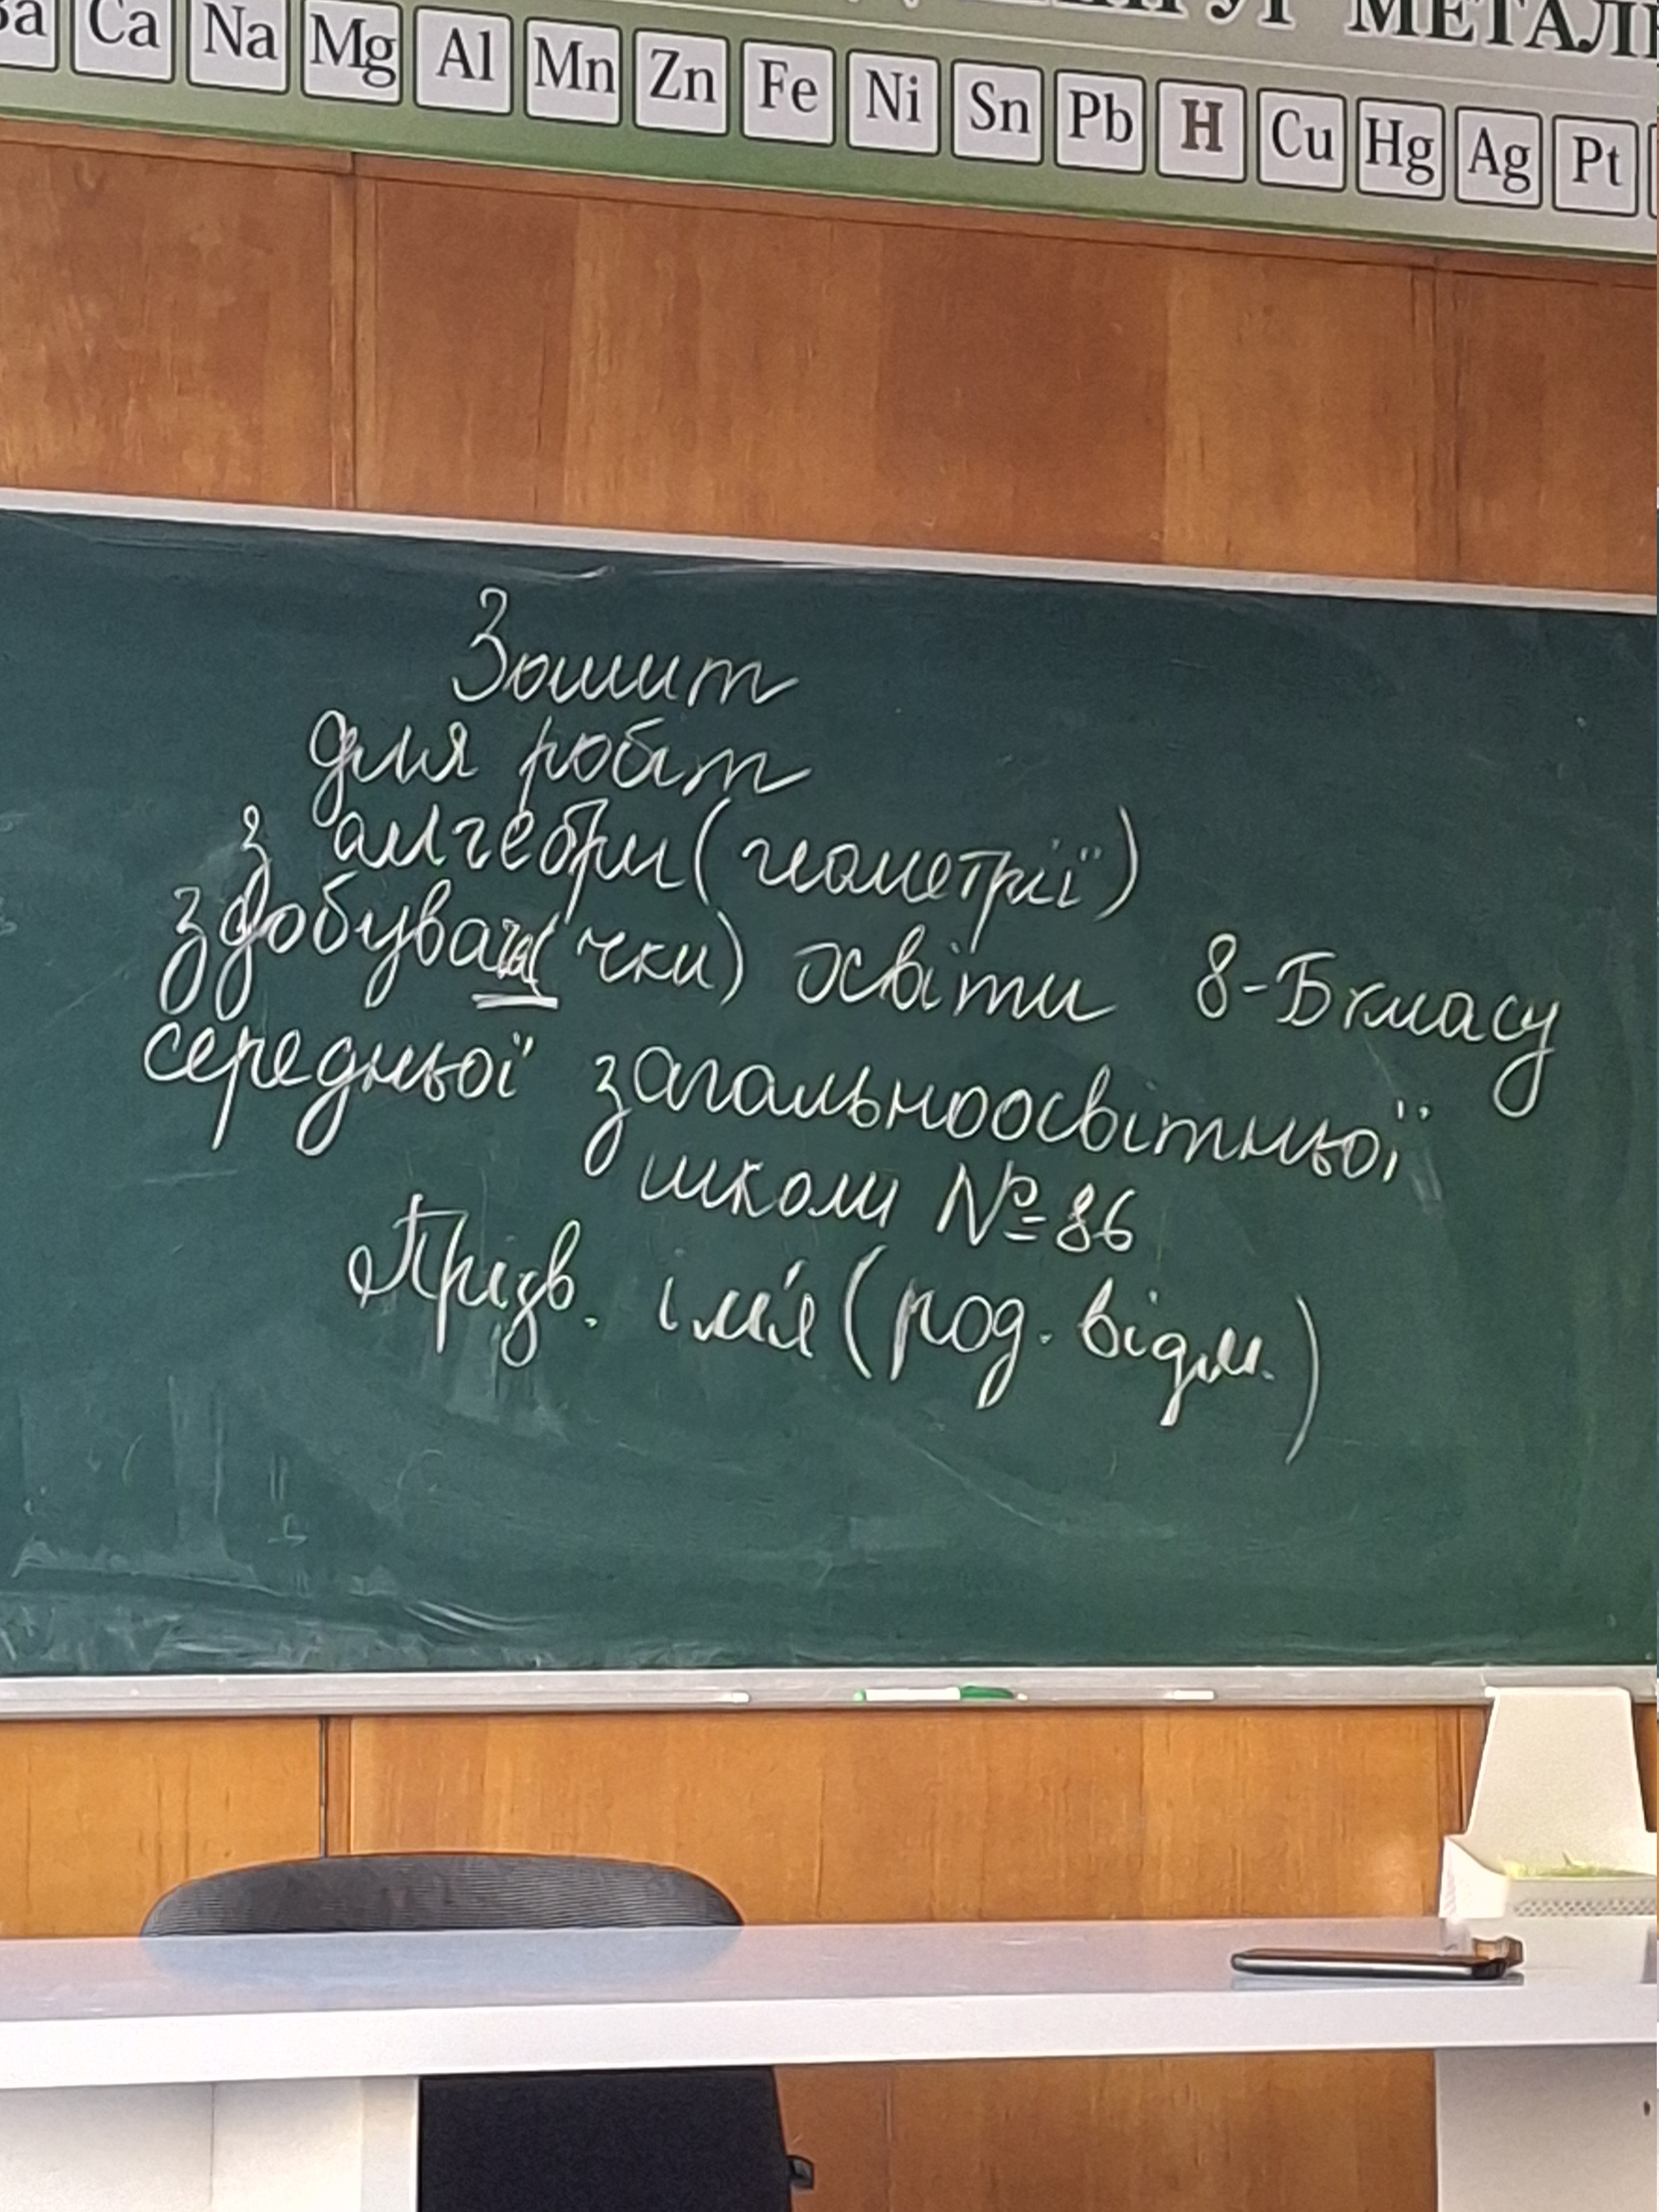 Ca Na Mg Al Mn Zn Fe Ni Sn Pb H Cu Hg Ag Pt
Зошит
для робіт
з алгебри (геометрії)
здобувача(чки) освіти 8-Б класу
середньої загальноосвітньої
школи № 86
Прізв. ім'я (род. відм.)